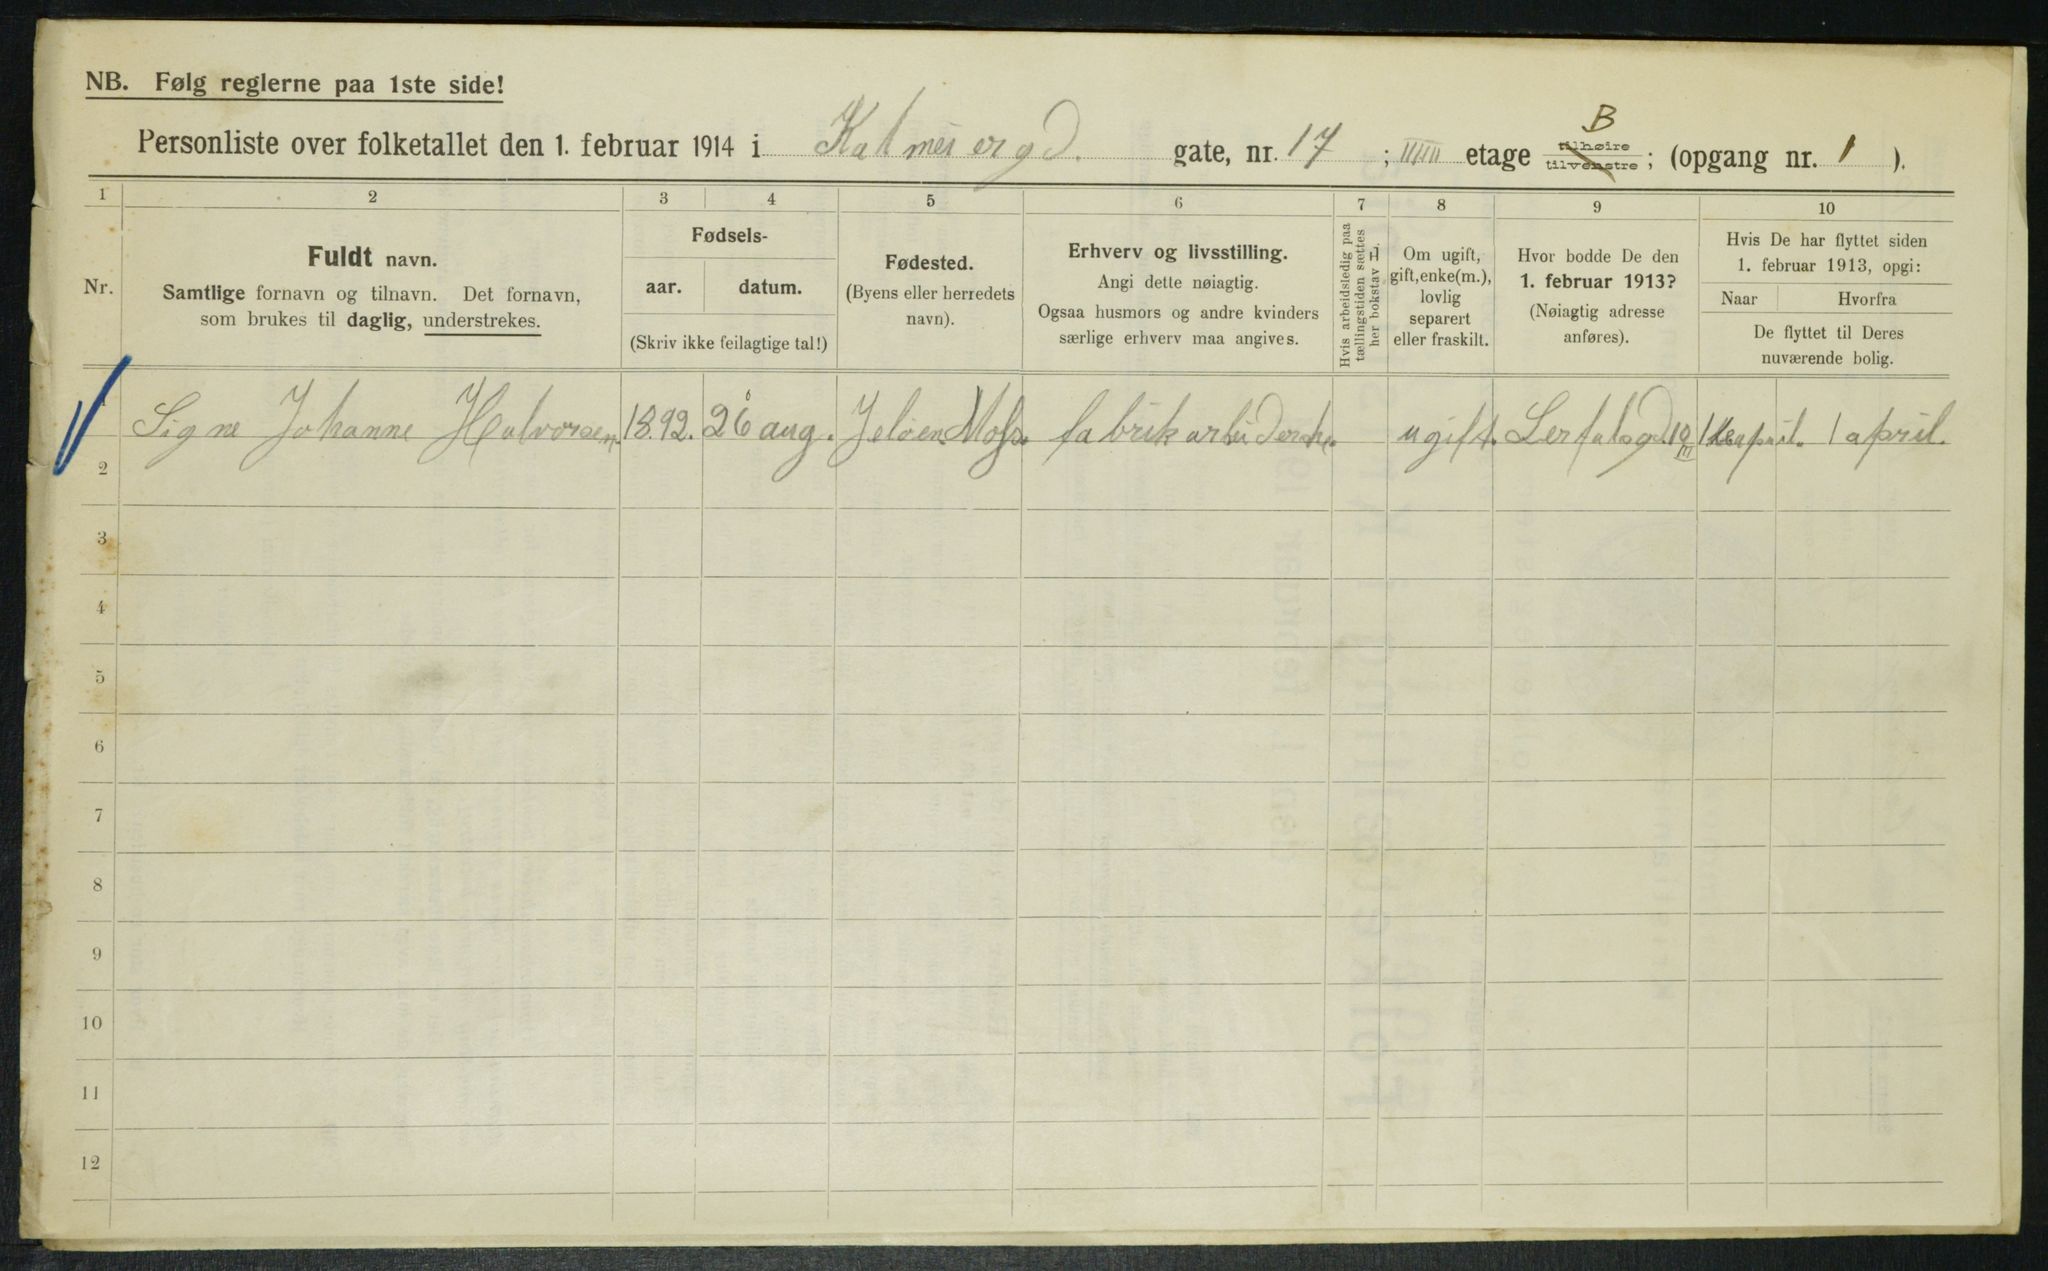 NB. Følg reglerne paa 1ste side!
B
Personliste over folketallet den 1. februar 1914 i Kalmeiergd. gate, nr. 17 ; IIIII etage tilhøire tilvenstre ; (opgang nr. 1 ).
1 2 3 4 5 6 7 8 9 10
Nr.
Fuldt navn.
Samtlige fornavn og tilnavn. Det fornavn,
som brukes til daglig, understrekes.
Fødsels-
aar. datum.
(Skriv ikke feilagtige tal!)
Fødested.
(Byens eller herredets
navn).
Erhverv og livsstilling.
Angi dette nøiagtig.
Ogsaa husmors og andre kvinders
særlige erhverv maa angives.
Hvis arbeidsledig paa
tællingstiden sættes
her bokstav L.
Om ugift,
gift, enke(m.),
lovlig
separert
eller fraskilt.
Hvor bodde De den
1. februar 1913?
(Nøiagtig adresse
anføres).
Hvis De har flyttet siden
1. februar 1913, opgi:
Naar Hvorfra
De flyttet til Deres
nuværende bolig.
1 Signe Johanne Halvorsen. 1892. 26 aug. Jeløen Moss. fabrikarbeiderske. ugift. Lerfalsgd. 10 III 1 april. 1 april.
2
3
4
5
6
7
8
9
10
11
12